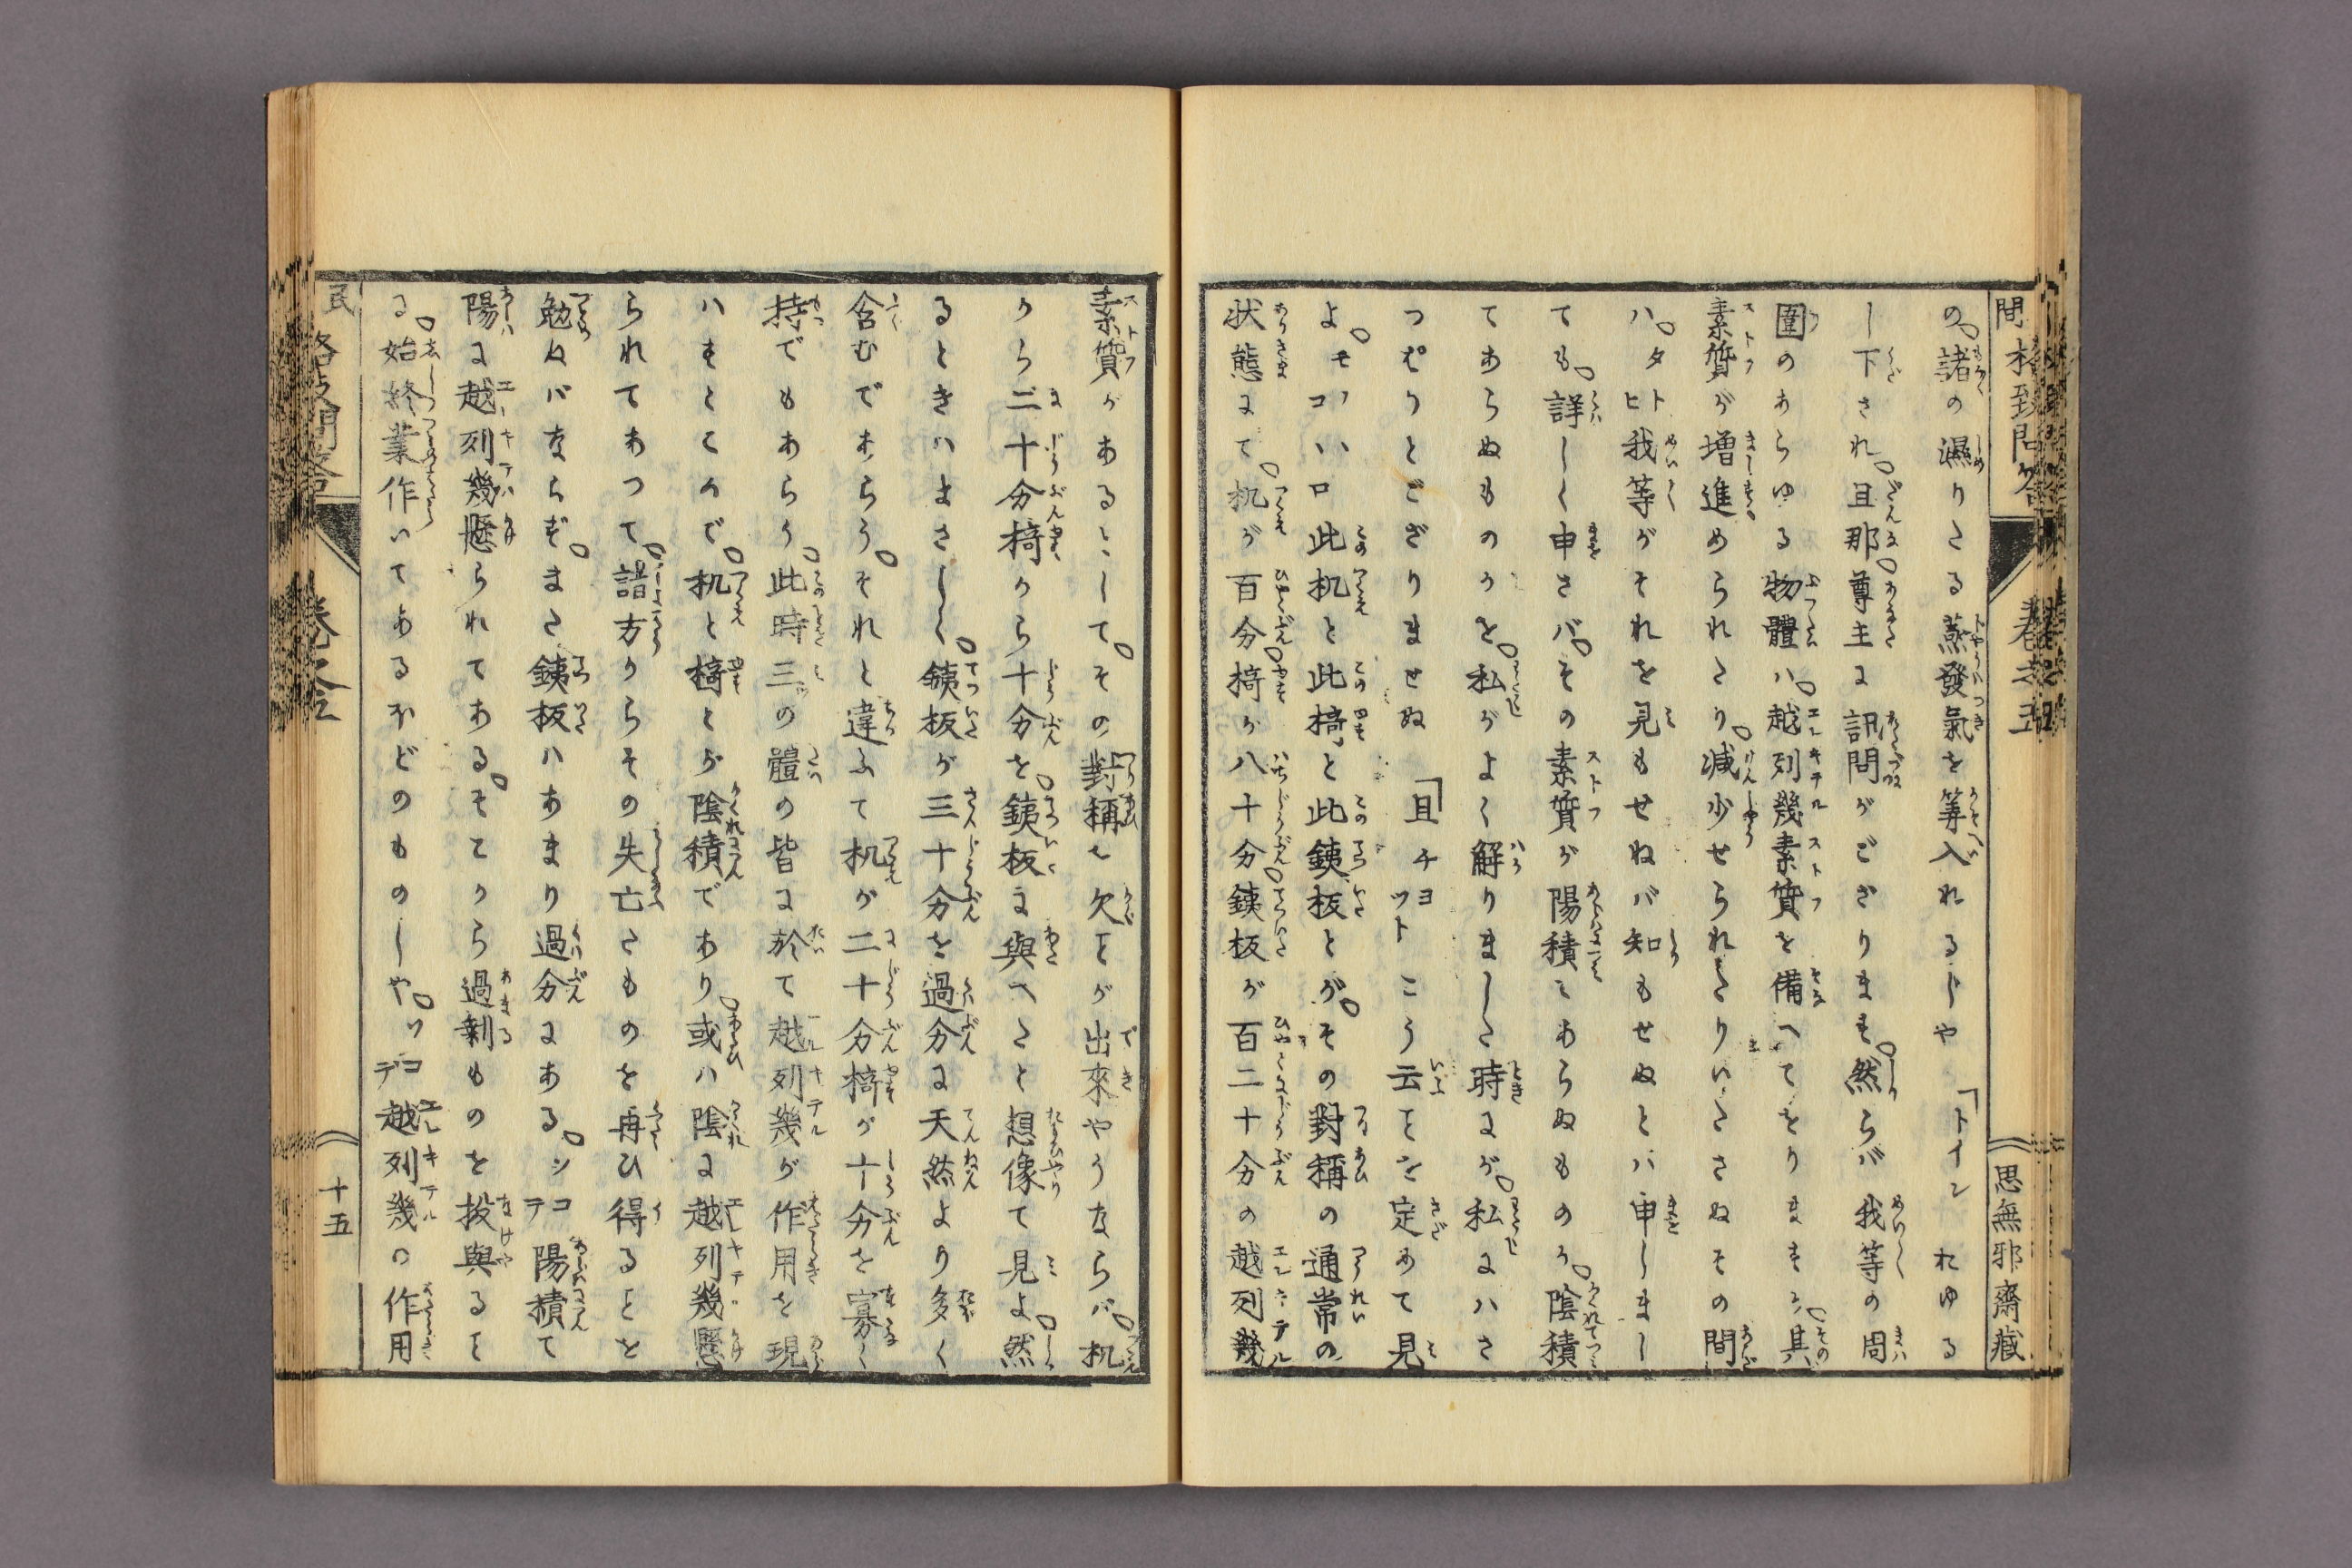 民間格致問答
巻之五
思無邪齋藏
の諸の濕りたる蒸發氣を等入れるじや「トイン れゆる
し下され旦那尊主に訊問がござります然らバ我等の周
圍のあらゆる物體ハ越列幾素質を備へてをりますが其
素質が増進められたり減少せられたりいたさぬその間
ハタトヒ我等がそれを見もせねバ知もせぬとハ申しまし
ても詳しく申さバその素質が陽積てあらぬものか陰積
てあらぬものかを私がよく解りました時にが私にハさ
つぱりとござりませぬ「且チヨツトこう云ことを定あて見
よモツコハ此机と此椅と此銕板とがその對稱の通常の
状態にて机が百分椅が八十分銕板が百二十分の越列幾
素質があるとしてその對稱を欠ことが出來やうならバ机
から二十分椅から十分を銕板に與へたと想像て見よ然
るときハまさしく銕板が三十分を過分に天然より多く
含むであらうそれと違ふて机が二十分椅が十分を寡く
持でもあらう此時三の體の皆に於て越列幾が作用を現
ハすとての で机と椅とが陰積であり或ハ陰に越列幾懸
られてあつて諸方からその失亡たものを再ひ得ることを
勉ねバならぎまた銕板ハあまり過分にあるシテコ陽積て
陽に越列幾懸られてあるそこから過剰ものを投與ること
る始終業作いてあるほどのものじやソコデ越列幾の作用
民
格致問答
巻之五
十五